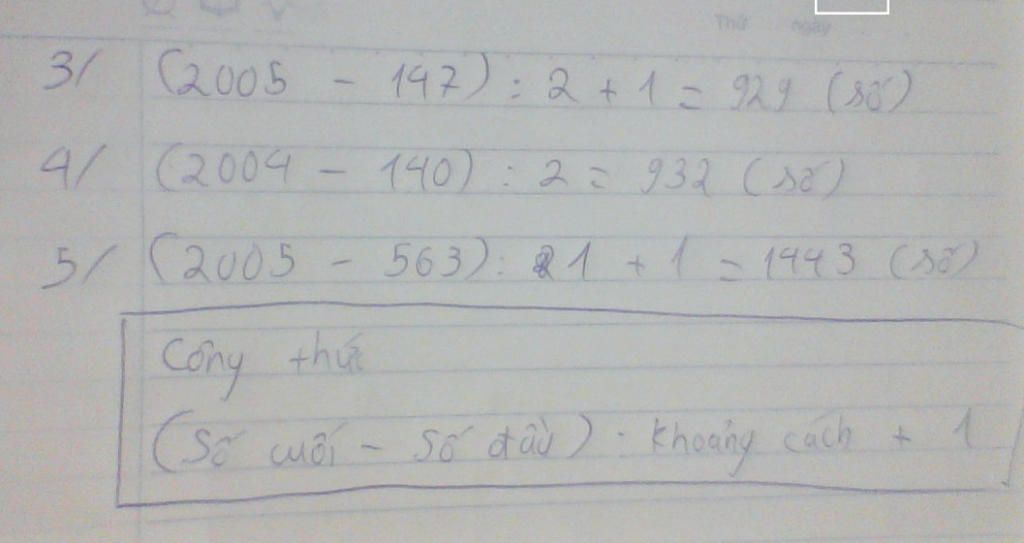 Thứ ngày
3/ (2005 - 147) : 2 + 1 = 929 (số)
4/ (2004 - 140) : 2 = 932 (số)
5/ (2005 - 563) : 1 + 1 = 1443 (số)
Công thức
(Số cuối - Số đầu) : khoảng cách + 1